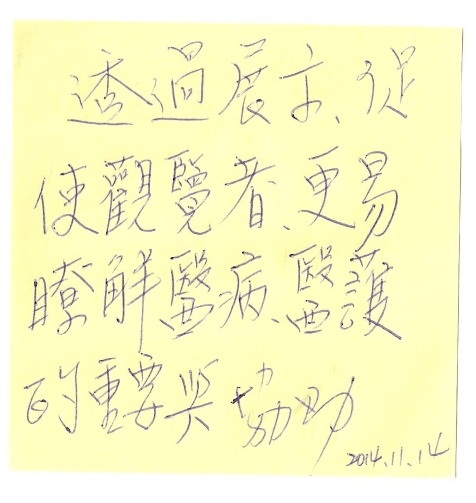 透過展示、促
使觀覽者、更易
瞭解醫病、醫護
的重要與協助
2014.11.14